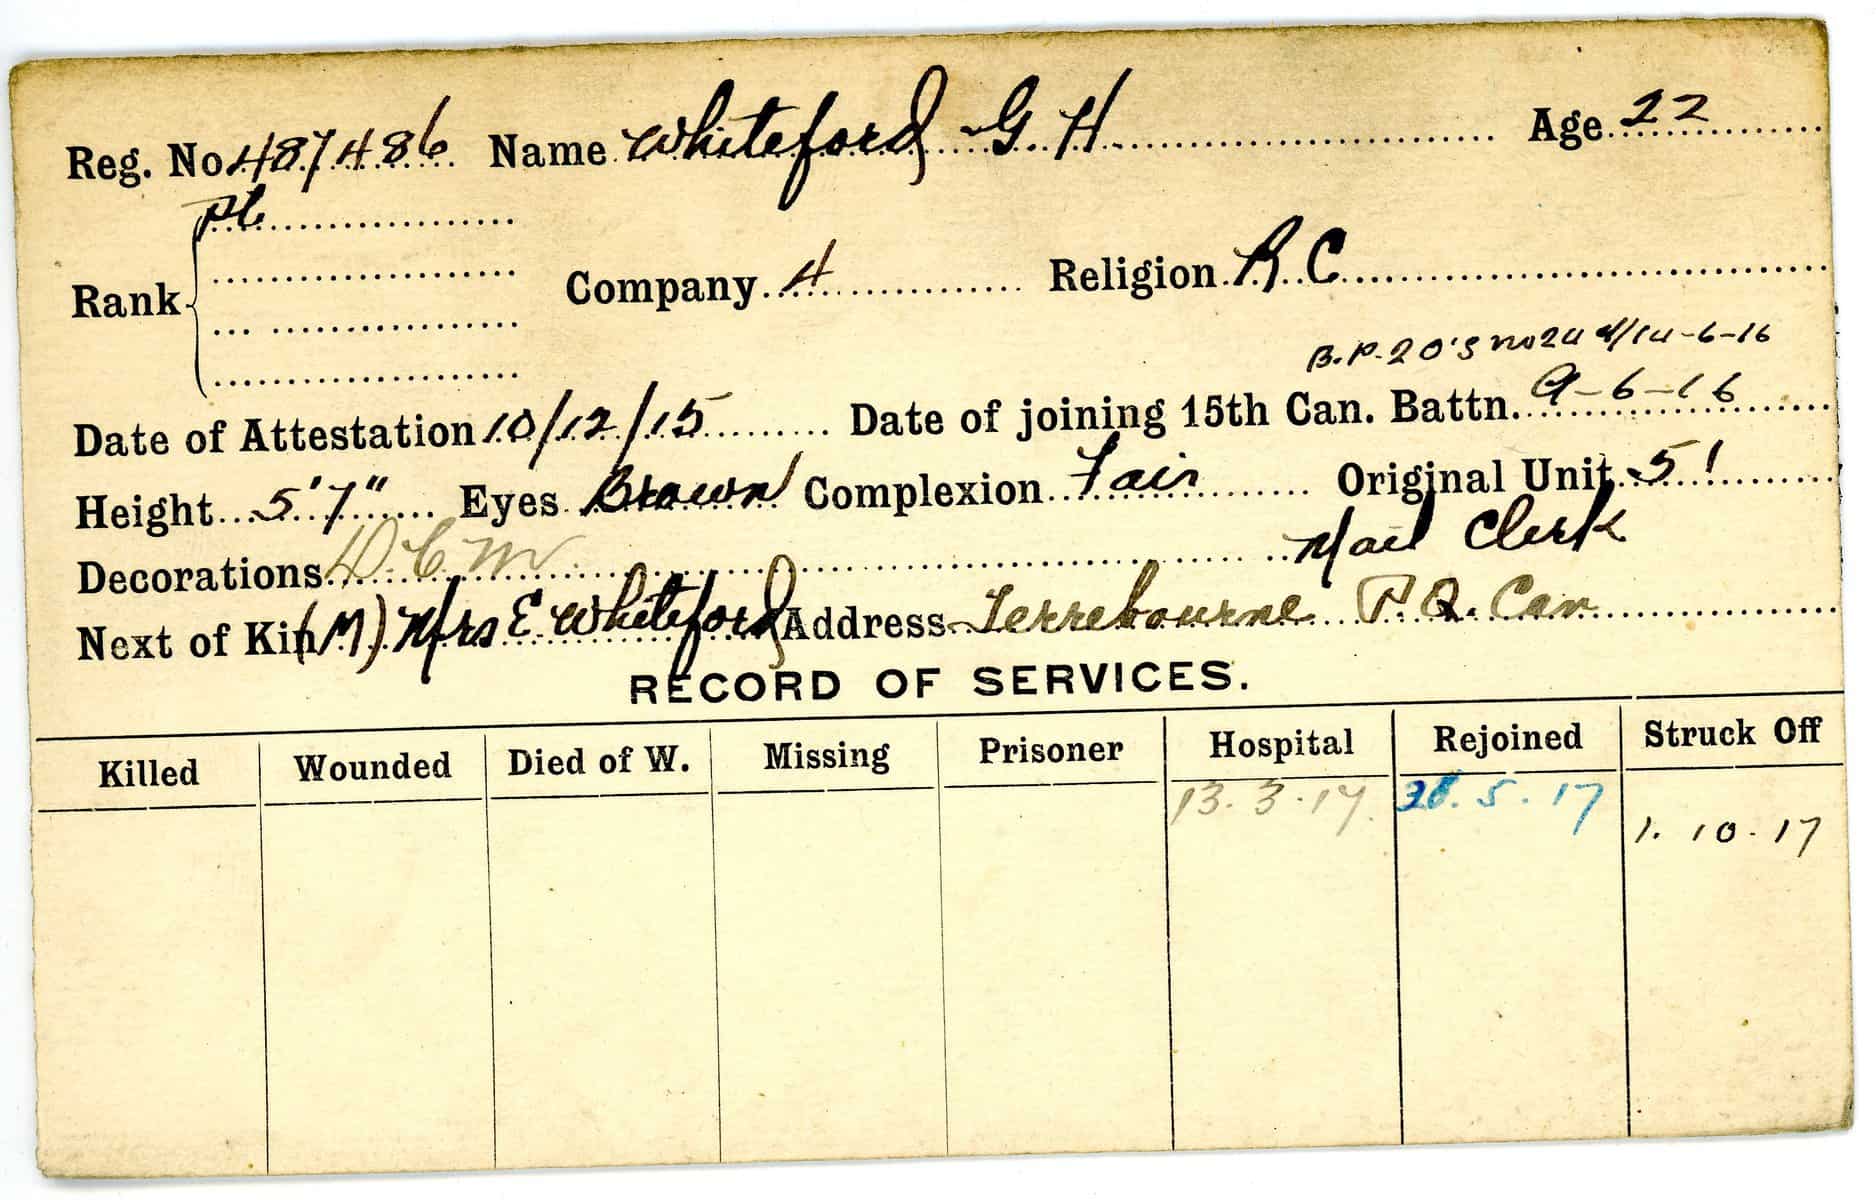 Reg. No. 487486 Name Whiteford G. H. Age 22
Pte
Rank Company 4 Religion R.C.
B.P. 20's no 24 d/14-6-16
Date of Attestation 10/12/15 Date of joining 15th Can. Battn. 9-6-16
Height 5'7" Eyes Brown Complexion Fair Original Unit 5'
Decorations D.C.M Mail Clerk
Next of Kin (M) Mrs E Whiteford Address Terrebourne P.Q. Can
RECORD OF SERVICES.
Killed Wounded Died of W. Missing Prisoner Hospital Rejoined Struck Off
13.3.17. 28.5.17
1.10.17